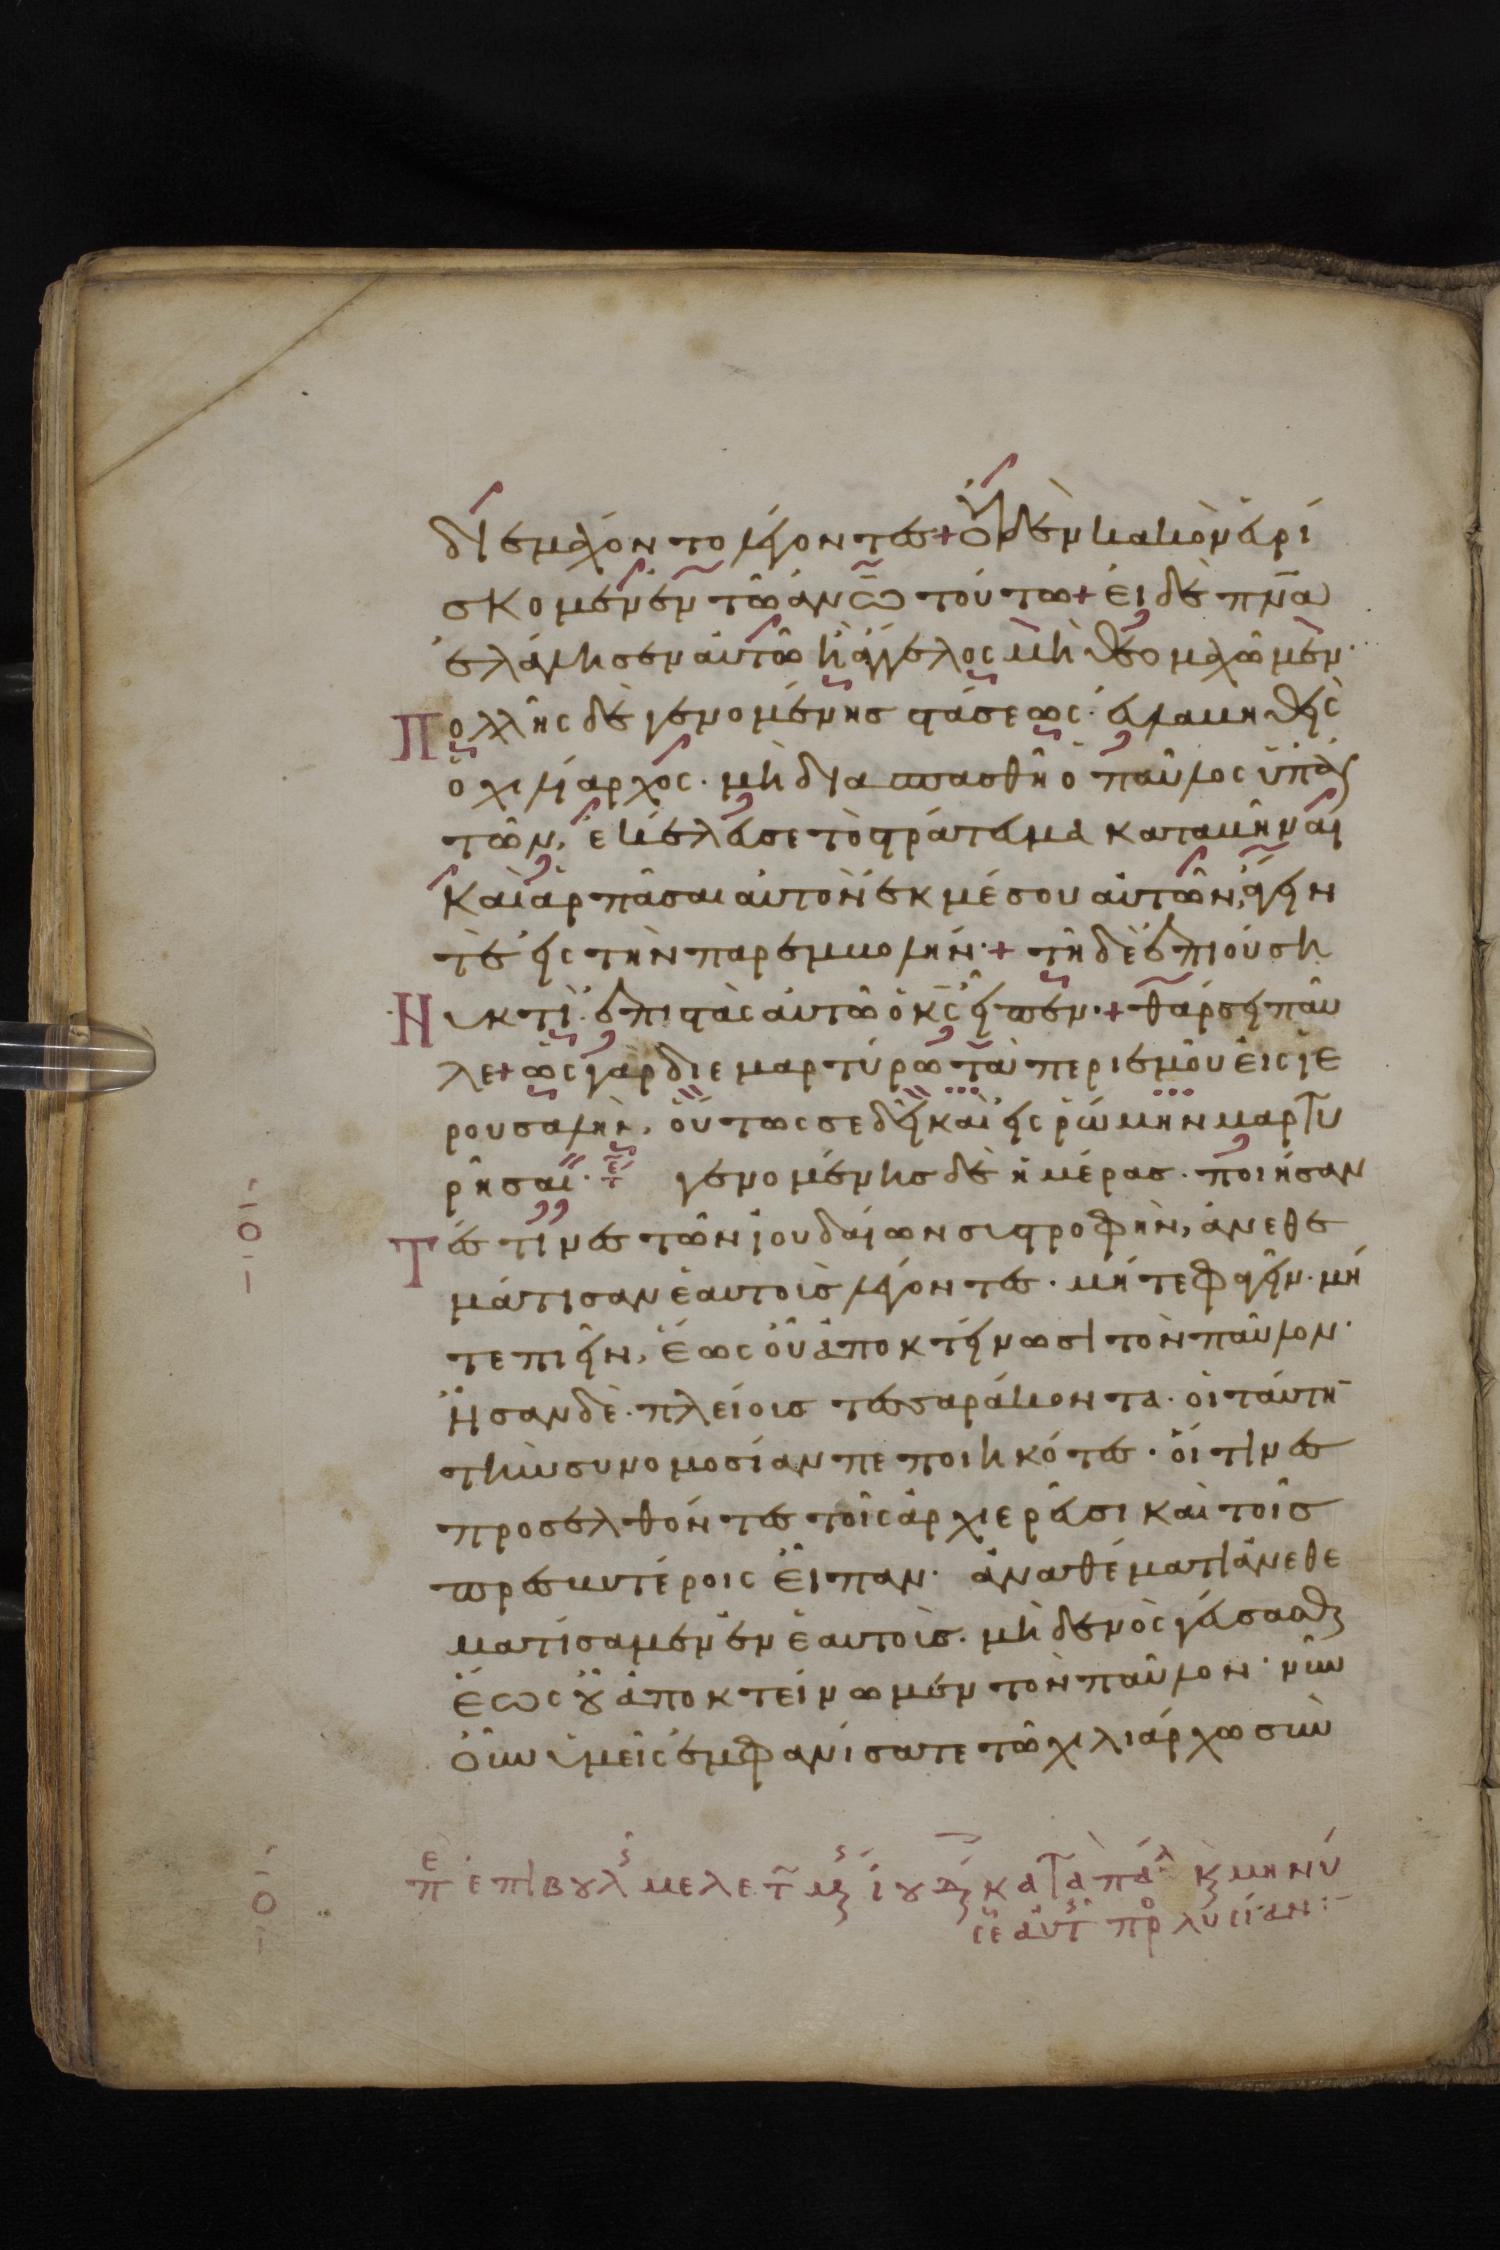 διεμάχοντο λέγοντες + Οὐδὲν κακὸν εὑρί
σκομεν ἐν τῶ ἀνω τούτω + εἰ δὲ πνα
ἐλάλησεν αὐτῶ ἢ ἄγγελος μὴ θεομαχῶμεν·
Πολλῆς δὲ γενομένης στάσεως· εὐλαβηθεὶς
ὁ χιλίαρχος· μὴ διασπασθῆ ὁ παῦλος ὑπ' αὐ
τῶν, ἐκέλευσε τὸ στράτευμα καταβῆναι
καὶ ἁρπᾶσαι αὐτὸν ἐκ μέσου αὐτῶν, ἄγειν
τε εἰς τὴν παρεμβολήν· + τῆ δὲ ἐπιούση
Νυκτὶ· ἐπιστὰς αὐτῶ ὁ κς εἶπεν· + θάρσει παῦ
λε + ὡς γὰρ διεμαρτύρω τὰ περὶ ἐμοῦ εἰς ἱε
ρουσαλὴμ, οὕτως σε δεῖ καὶ εἰς ῥώμην μαρτυ
ρῆσαι· γενομένης δὲ ἡμέρας· ποιήσαν
Τές τινες τῶν ἰουδαίων συστροφὴν, ἀνεθε
μάτισαν ἑαυτοὺς λέγοντες· μήτε φαγεῖν· μή
τε πιεῖν, ἕως οὗ ἀποκτείνωσι τὸν παῦλον·
Ἦσαν δὲ· πλείους τεσσαράκοντα· οἱ ταύτη
τὴν συνομοσίαν πεποιηκότες· οἵτινες
προσελθόντες τοῖς ἀρχιερεῦσι καὶ τοῖς
πρεσβυτέροις εἶπαν· ἀναθέματι ἀνεθε
ματίσαμεν ἑαυτοὺς· μηδενὸς γεύσασθαι
ἕως οὗ ἀποκτείνωμεν τὸν παῦλον· νῦν
οὖν ὑμεῖς ἐμφανίσατε τῶ χιλιάρχω σὺν